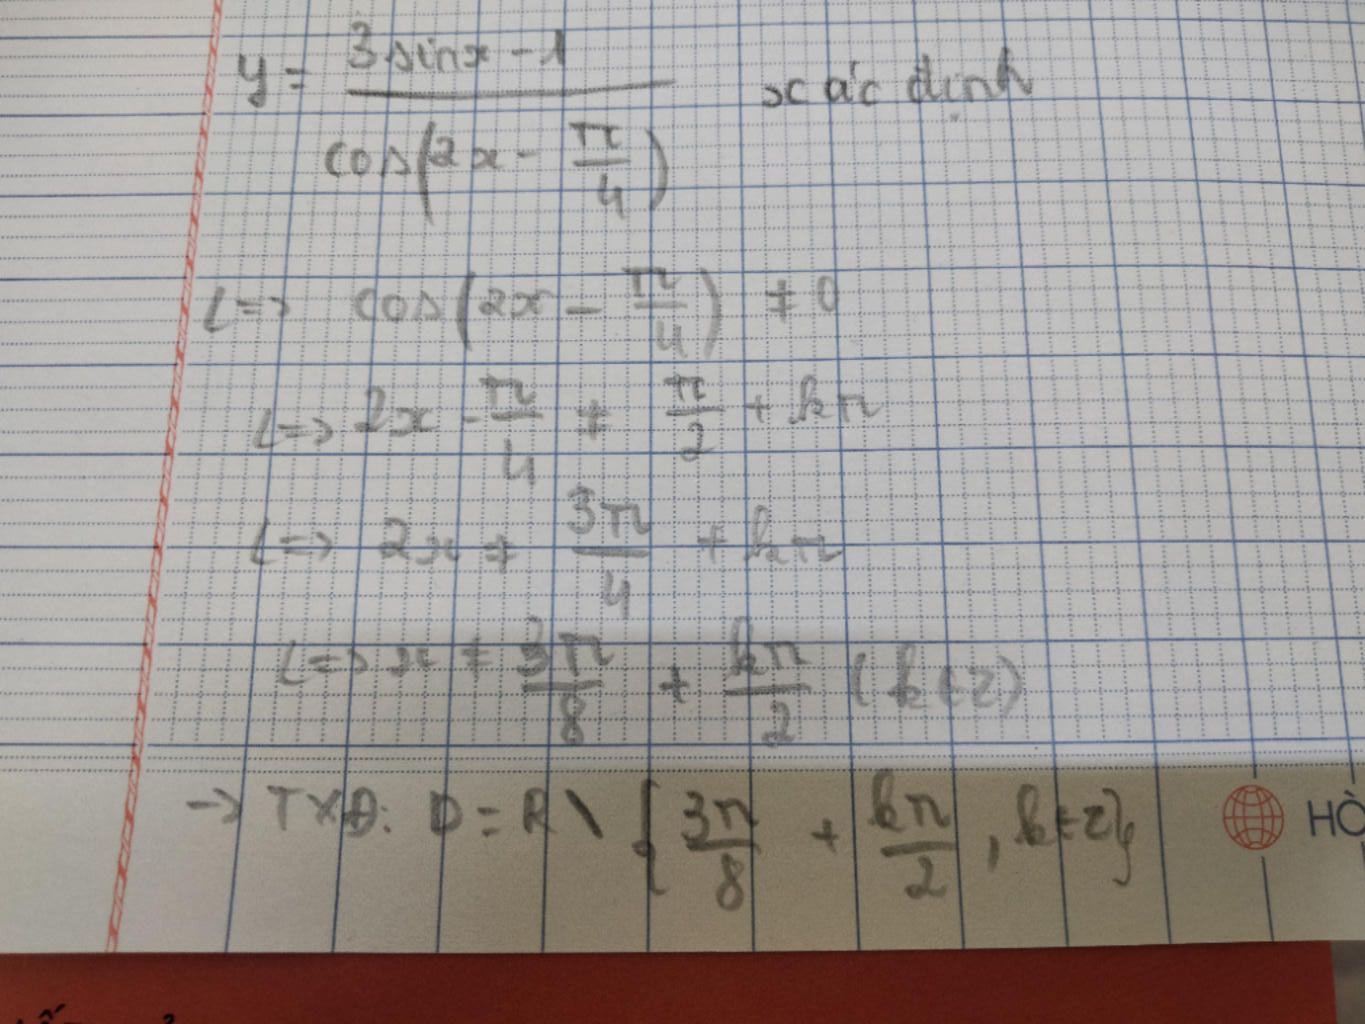 y = (3sinx - 1) / cos(2x - π/4) xác định
<=> cos(2x - π/4) ≠ 0
<=> 2x - π/4 ≠ π/2 + kπ
<=> 2x ≠ 3π/4 + kπ
<=> x ≠ 3π/8 + kπ/2 (k∈Z)
-> TXĐ: D = R \ { 3π/8 + kπ/2 , k∈Z}
HỒ